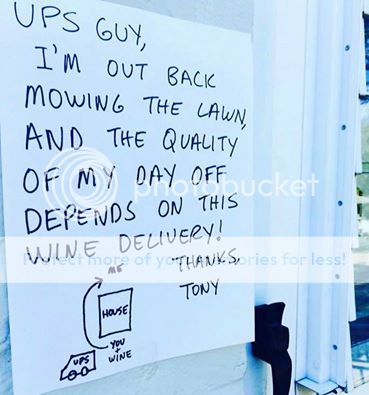 UPS GUY,
I'M OUT BACK
MOWING THE LAWN,
AND THE QUALITY
OF MY DAY OFF
photobucket
DEPENDS ON THIS
WINE DELIVERY!
Protect more of your memories for less!
THANKS,
TONY
ME
HOUSE
YOU
+
WINE
UPS